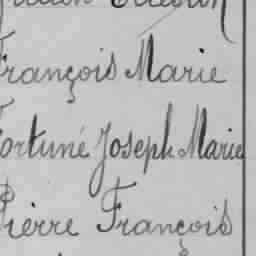 François Marie
Fortuné Joseph Marie
Pierre François